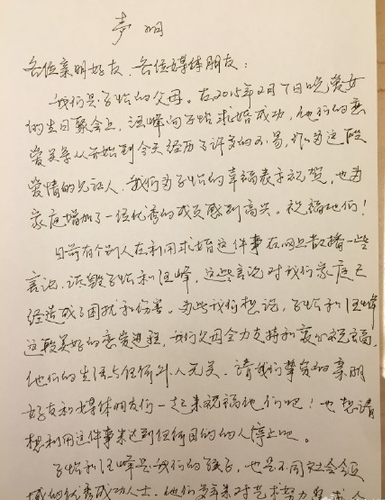 声明
各位亲朋好友、各位媒体朋友：
我们是子怡的父母。在2015年2月7日晚爱女
的生日聚会上，汪峰向子怡求婚成功，他们的恋
爱关系从开始到今天经历了许多的不易，作为这段
爱情的见证人，我们为子怡的幸福表示祝贺，也为
家庭增加了一位优秀的成员感到高兴。祝福他们！
目前有个别人在利用求婚这件事在网上散播一些
言论，诋毁子怡和汪峰，这些言论对我们家庭已
经造成了困扰和伤害。为此我们想说，子怡和汪峰
这段美好的恋爱进程，我们父母全力支持和衷心祝福，
他们的生活与任何外人无关。请我们挚爱的亲朋
好友和媒体朋友们一起来祝福他们吧！也想请
想利用这件事来达到任何目的的人停止吧。
子怡和汪峰是我们的孩子，也是不同社会领
域的优秀成功人士。他们